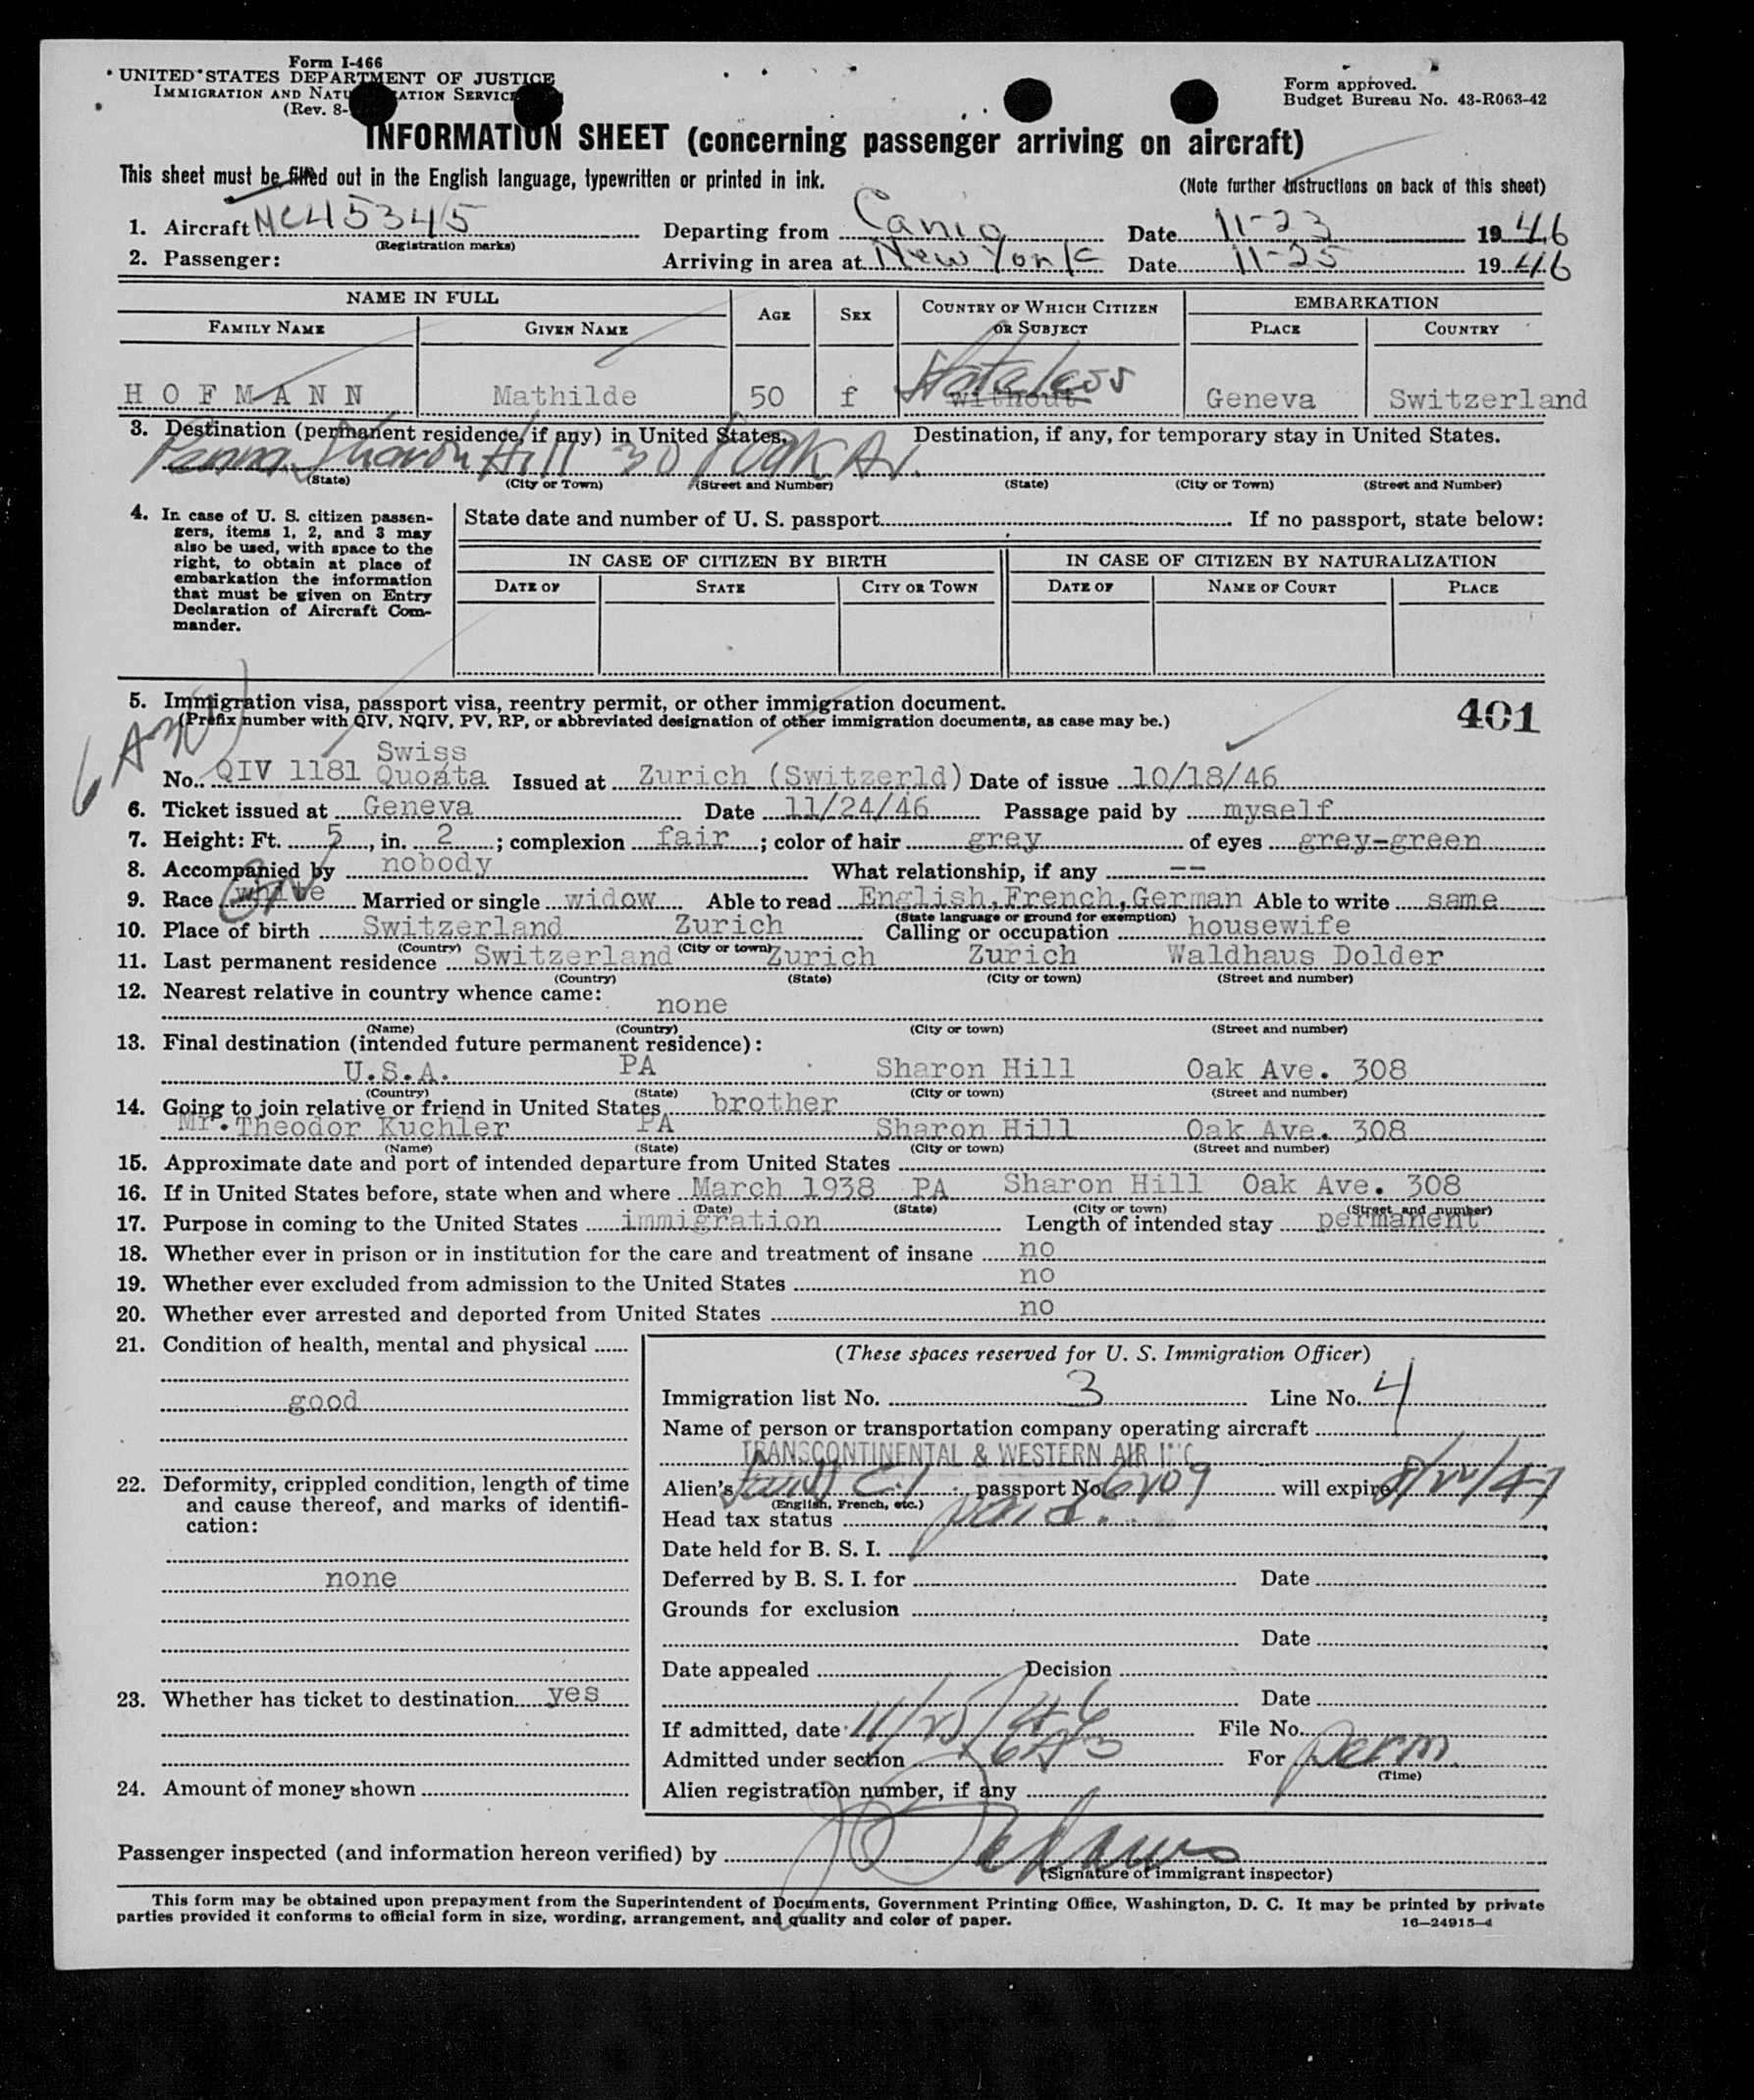 Form I-466
UNITED STATES DEPARTMENT OF JUSTICE
IMMIGRATION AND NATU ATION SERVICE
(Rev. 8-
Form approved.
Budget Bureau No. 43-R063-42
INFORMATION SHEET (concerning passenger arriving on aircraft)
This sheet must be filled out in the English language, typewritten or printed in ink. (Note further instructions on back of this sheet)
1. Aircraft NC45345 Departing from Cairo Date 11-23 1946
(Registration marks)
2. Passenger: Arriving in area at New York Date 11-25 1946
NAME IN FULL AGE SEX COUNTRY OF WHICH CITIZEN OR SUBJECT EMBARKATION
FAMILY NAME GIVEN NAME PLACE COUNTRY
Stateless
HOFMANN Mathilde 50 f without Geneva Switzerland
3. Destination (permanent residence, if any) in United States. Destination, if any, for temporary stay in United States.
Penna. Sharon Hill 308 Oak Av.
(State) (City or Town) (Street and Number) (State) (City or Town) (Street and Number)
4. In case of U. S. citizen passen-
gers, items 1, 2, and 3 may
also be used, with space to the
right, to obtain at place of
embarkation the information
that must be given on Entry
Declaration of Aircraft Com-
mander.
State date and number of U. S. passport If no passport, state below:
IN CASE OF CITIZEN BY BIRTH IN CASE OF CITIZEN BY NATURALIZATION
DATE OF STATE CITY OR TOWN DATE OF NAME OF COURT PLACE
5. Immigration visa, passport visa, reentry permit, or other immigration document. 401
(Prefix number with QIV, NQIV, PV, RP, or abbreviated designation of other immigration documents, as case may be.)
6A3
Swiss
No. QIV 1181 Quoata Issued at Zurich (Switzerld) Date of issue 10/18/46
6. Ticket issued at Geneva Date 11/24/46 Passage paid by myself
7. Height: Ft. 5, in. 2; complexion fair; color of hair grey of eyes grey-green
8. Accompanied by nobody What relationship, if any --
9. Race white Married or single widow Able to read English,French,German Able to write same
(State language or ground for exemption)
10. Place of birth Switzerland Zurich Calling or occupation housewife
(Country) (City or town)
11. Last permanent residence Switzerland Zurich Zurich Waldhaus Dolder
(Country) (State) (City or town) (Street and number)
12. Nearest relative in country whence came:
none
(Name) (Country) (City or town) (Street and number)
13. Final destination (intended future permanent residence):
U.S.A. PA Sharon Hill Oak Ave. 308
(Country) (State) (City or town) (Street and number)
14. Going to join relative or friend in United States brother
Mr. Theodor Kuchler PA Sharon Hill Oak Ave. 308
(Name) (State) (City or town) (Street and number)
15. Approximate date and port of intended departure from United States
16. If in United States before, state when and where March 1938 PA Sharon Hill Oak Ave. 308
(Date) (State) (City or town) (Street and number)
17. Purpose in coming to the United States immigration Length of intended stay permanent
18. Whether ever in prison or in institution for the care and treatment of insane no
19. Whether ever excluded from admission to the United States no
20. Whether ever arrested and deported from United States no
21. Condition of health, mental and physical
good
22. Deformity, crippled condition, length of time
and cause thereof, and marks of identifi-
cation:
none
23. Whether has ticket to destination yes
24. Amount of money shown
(These spaces reserved for U. S. Immigration Officer)
Immigration list No. 3 Line No. 4
Name of person or transportation company operating aircraft
TRANSCONTINENTAL & WESTERN AIR INC
Alien's passport No. 6209 will expire
(English, French, etc.)
Head tax status paid.
Date held for B. S. I.
Deferred by B. S. I. for Date
Grounds for exclusion
Date
Date appealed Decision
Date
If admitted, date 11/25/46 File No.
Admitted under section 6A3 For perm.
(Time)
Alien registration number, if any
Passenger inspected (and information hereon verified) by
(Signature of immigrant inspector)
This form may be obtained upon prepayment from the Superintendent of Documents, Government Printing Office, Washington, D. C. It may be printed by private
parties provided it conforms to official form in size, wording, arrangement, and quality and color of paper. 16—24915-4